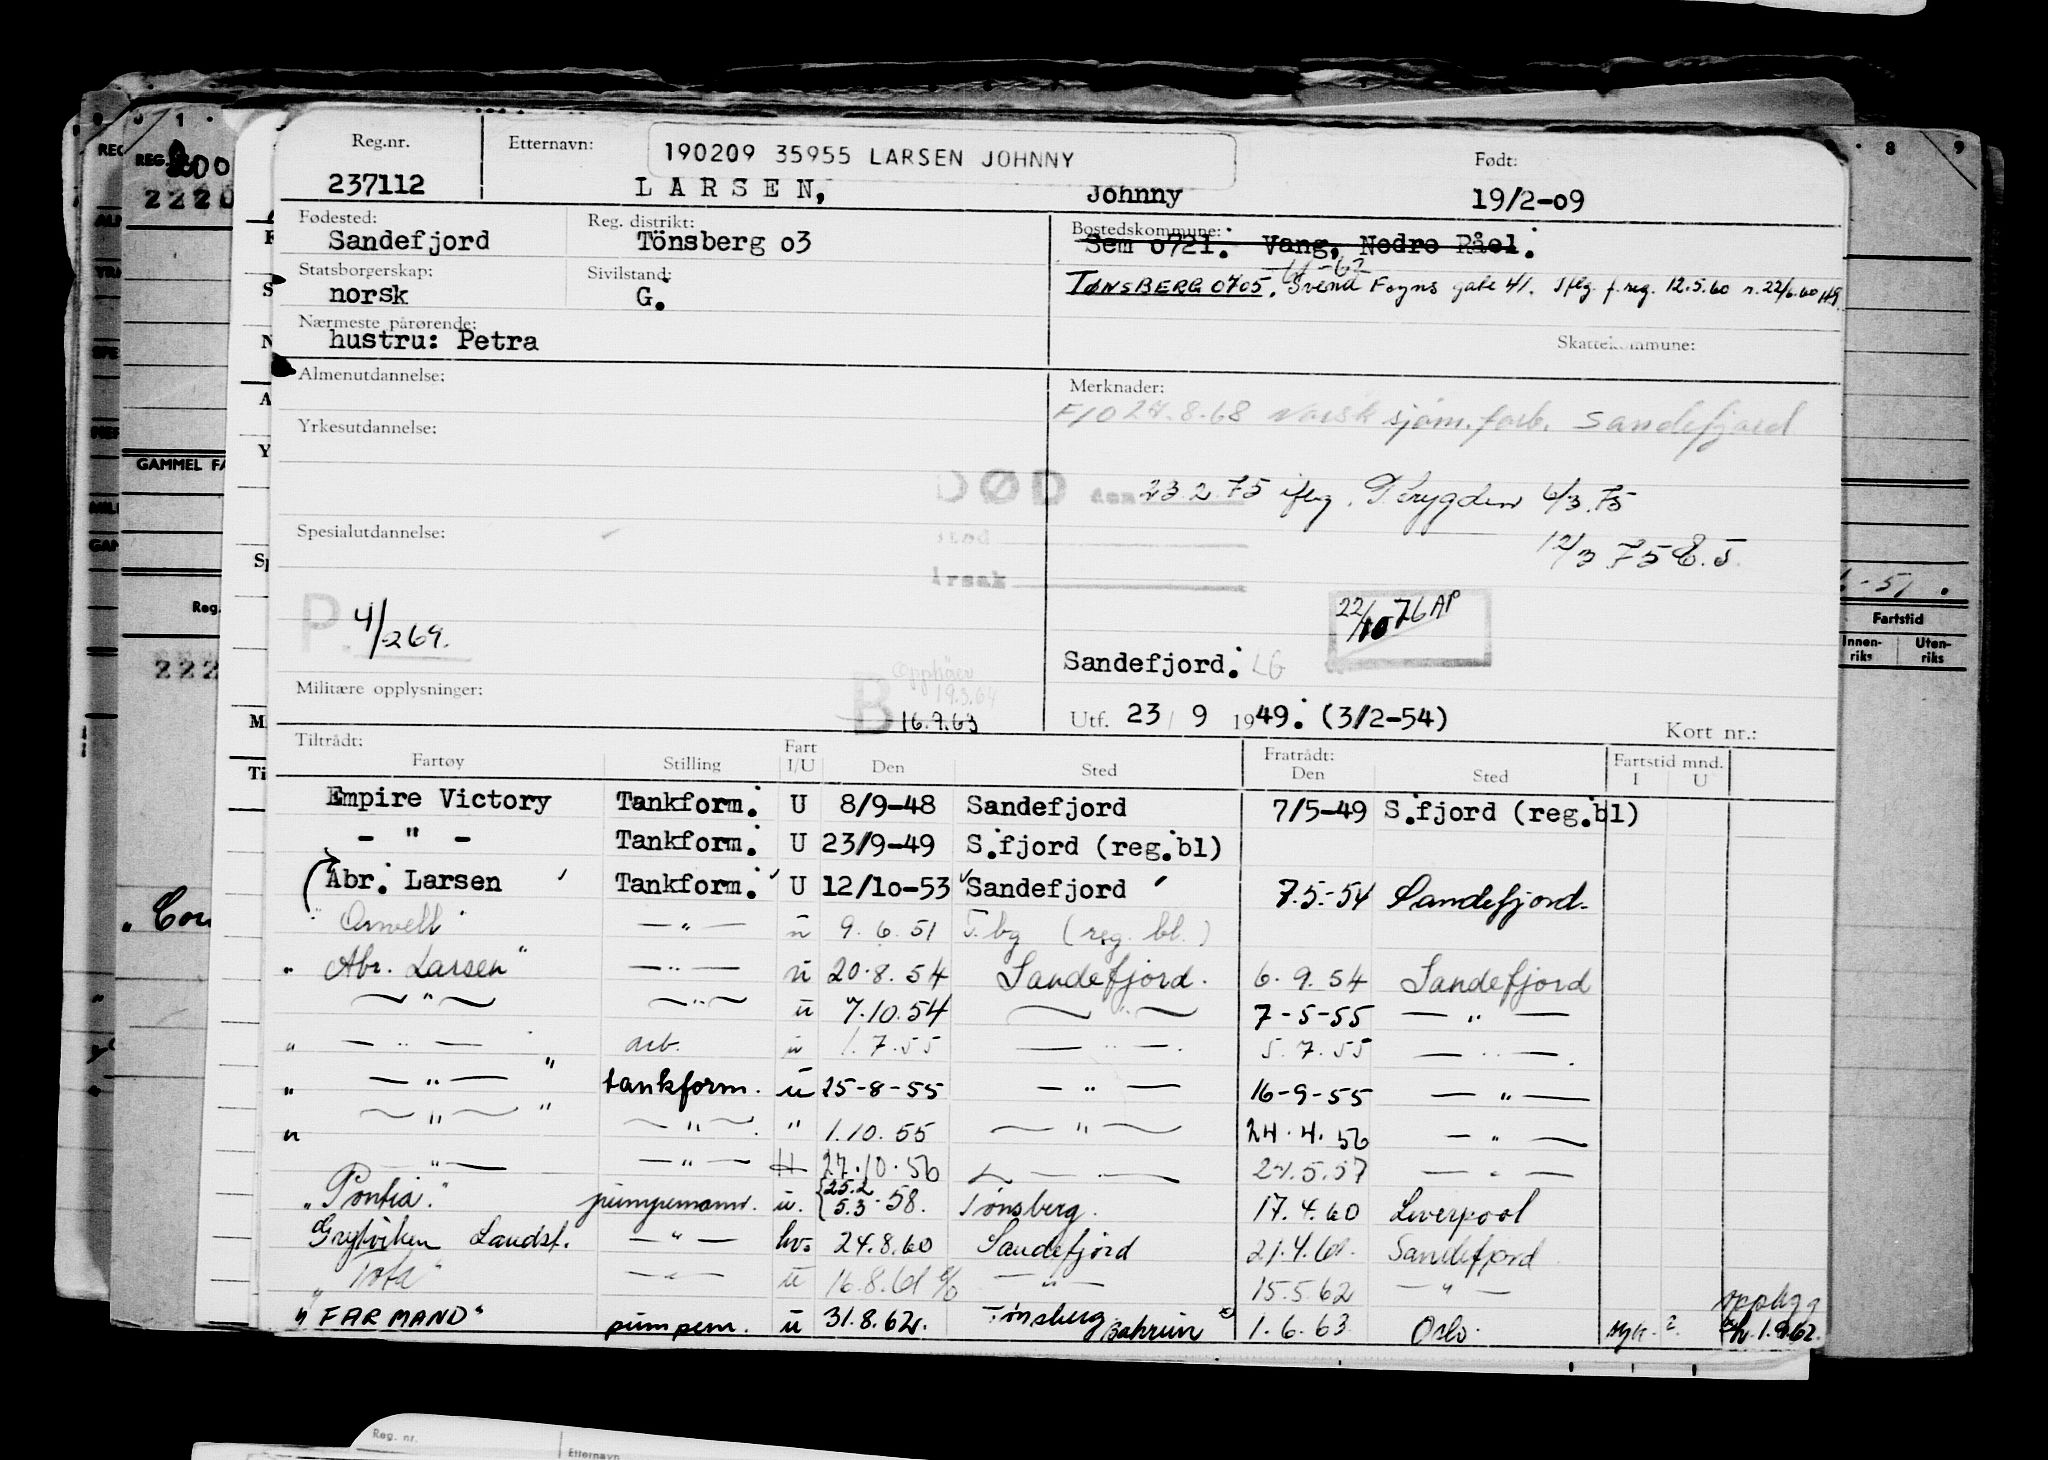 Reg.nr. Etternavn: 190209 35955 LARSEN JOHNNY Født:
237112 LARSEN, Johnny 19/2-09
Fødested: Reg. distrikt: Bostedskommune:
Sandefjord Tönsberg 03 Sem 0721. Vang, Nedre Råel.
Statsborgerskap: Sivilstand: 61-62
norsk G. TØNSBERG 0705. Svend Foyns gate 41. Iflg. f.reg. 12.5.60 r. 22/6.60 HG
Nærmeste pårørende: Skattekommune:
hustru: Petra
Almenutdannelse: Merknader:
F/O 27.8.68 Norsk sjøm.forb. Sandefjord
Yrkesutdannelse:
DØD den 23.2.75 iflg. T.trygden 6/3.75
Spesialutdannelse: sted 12/3 75 E.J.
årsak
P. 4/269. 22/10 76 AP
Sandefjord. LG
Opphæv 19.3.64
Militære opplysninger: B 16.9.63 Utf. 23/9 1949. (3/2-54)
Kort nr.:
Tiltrådt: Fratrådt: Fartstid mnd.
Fartøy Stilling Fart I/U Den Sted Den Sted I U
Empire Victory Tankform. U 8/9-48 Sandefjord 7/5-49 S.fjord (reg.bl)
- " - Tankform. U 23/9-49 S.fjord (reg.bl)
Abr. Larsen Tankform. U 12/10-53 Sandefjord 7.5.-54 Sandefjord.
" Orwell — " — u 9.6.51 T.bg (reg. bl.)
" Abr. Larsen" — " — u 20.8.54 Sandefjord. 6.9.54 Sandefjord
— " — — " — u 7.10.54 — " — 7-5-55 — " —
" — " — arb. u 1.7.55 — " — 5.7.55 — " —
" — " — " tankform. u 25-8-55 — " — 16-9-55 — " —
" — " — " — " — " 1.10.55 — " — 24.4.56 — " —
— " — — " — U 27.10.56 — " — 21.5.57 — " —
"Pontia." pumpemann. u. 25.2 5.3.58. Tønsberg. 17.4.60 Liverpool
Grytviken Landst. — " — hv. 24.8.60 Sandefjord 21.4.61. Sandefjord
" Tota" — " — u 16.8.61 — " — 15.5.62 — " —
"FARMAND" pumpem. u 31.8.62. Tønsberg Bahrein 1.6.63 Oslo. syk. 1.9.62.
REG.
GAMMEL FA
Reg.
Fartstid
Innen-riks Uten-riks
Reg. nr. Etternavn